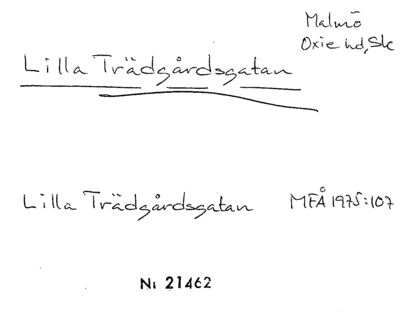 Malmö
Oxie hd, Sk
Lilla Trädgårdsgatan
Lilla Trädgårdsgatan MFÅ 1975:107
Ni 21462